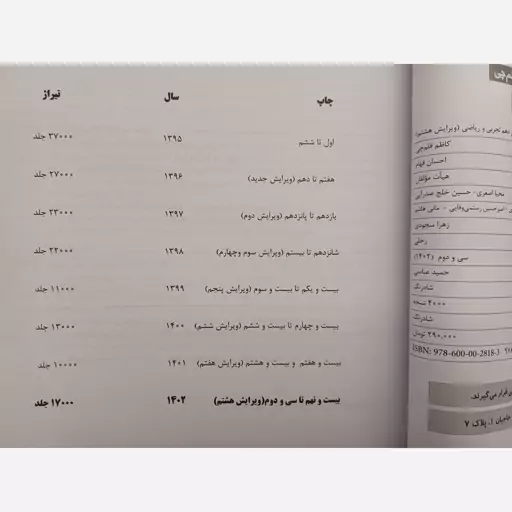 چاپ سال تیراژ
اول تا ششم ۱۳۹۵ ۳۷۰۰۰ جلد
هفتم تا دهم (ویرایش جدید) ۱۳۹۶ ۲۷۰۰۰ جلد
یازدهم تا پانزدهم (ویرایش دوم) ۱۳۹۷ ۲۳۰۰۰ جلد
شانزدهم تا بیستم (ویرایش سوم وچهارم) ۱۳۹۸ ۲۲۰۰۰ جلد
بیست و یکم تا بیست و سوم (ویرایش پنجم) ۱۳۹۹ ۱۱۰۰۰ جلد
بیست و چهارم تا بیست و ششم (ویرایش ششم) ۱۴۰۰ ۱۳۰۰۰ جلد
بیست و هفتم و بیست و هشتم (ویرایش هفتم) ۱۴۰۱ ۱۰۰۰۰ جلد
بیست و نهم تا سی و دوم(ویرایش هشتم) ۱۴۰۲ ۱۷۰۰۰ جلد
تجربی و ریاضی (ویرایش هشتم)
کاظم قلم‌چی
احسان
هیأت مؤلفان
حسین خلج صدرآبی
امیرحسین رستمی‌وفایی - مانی
زهرا سجودی
رحلی
سی و دوم (۱۴۰۲)
حمید عباسی
شادرنگ
۴۰۰۰ نسخه
شادرنگ
۲۹۰,۰۰۰ تومان
ISBN: 978-600-00-2818-3
قرار می‌گیرند.
پلاک ۷